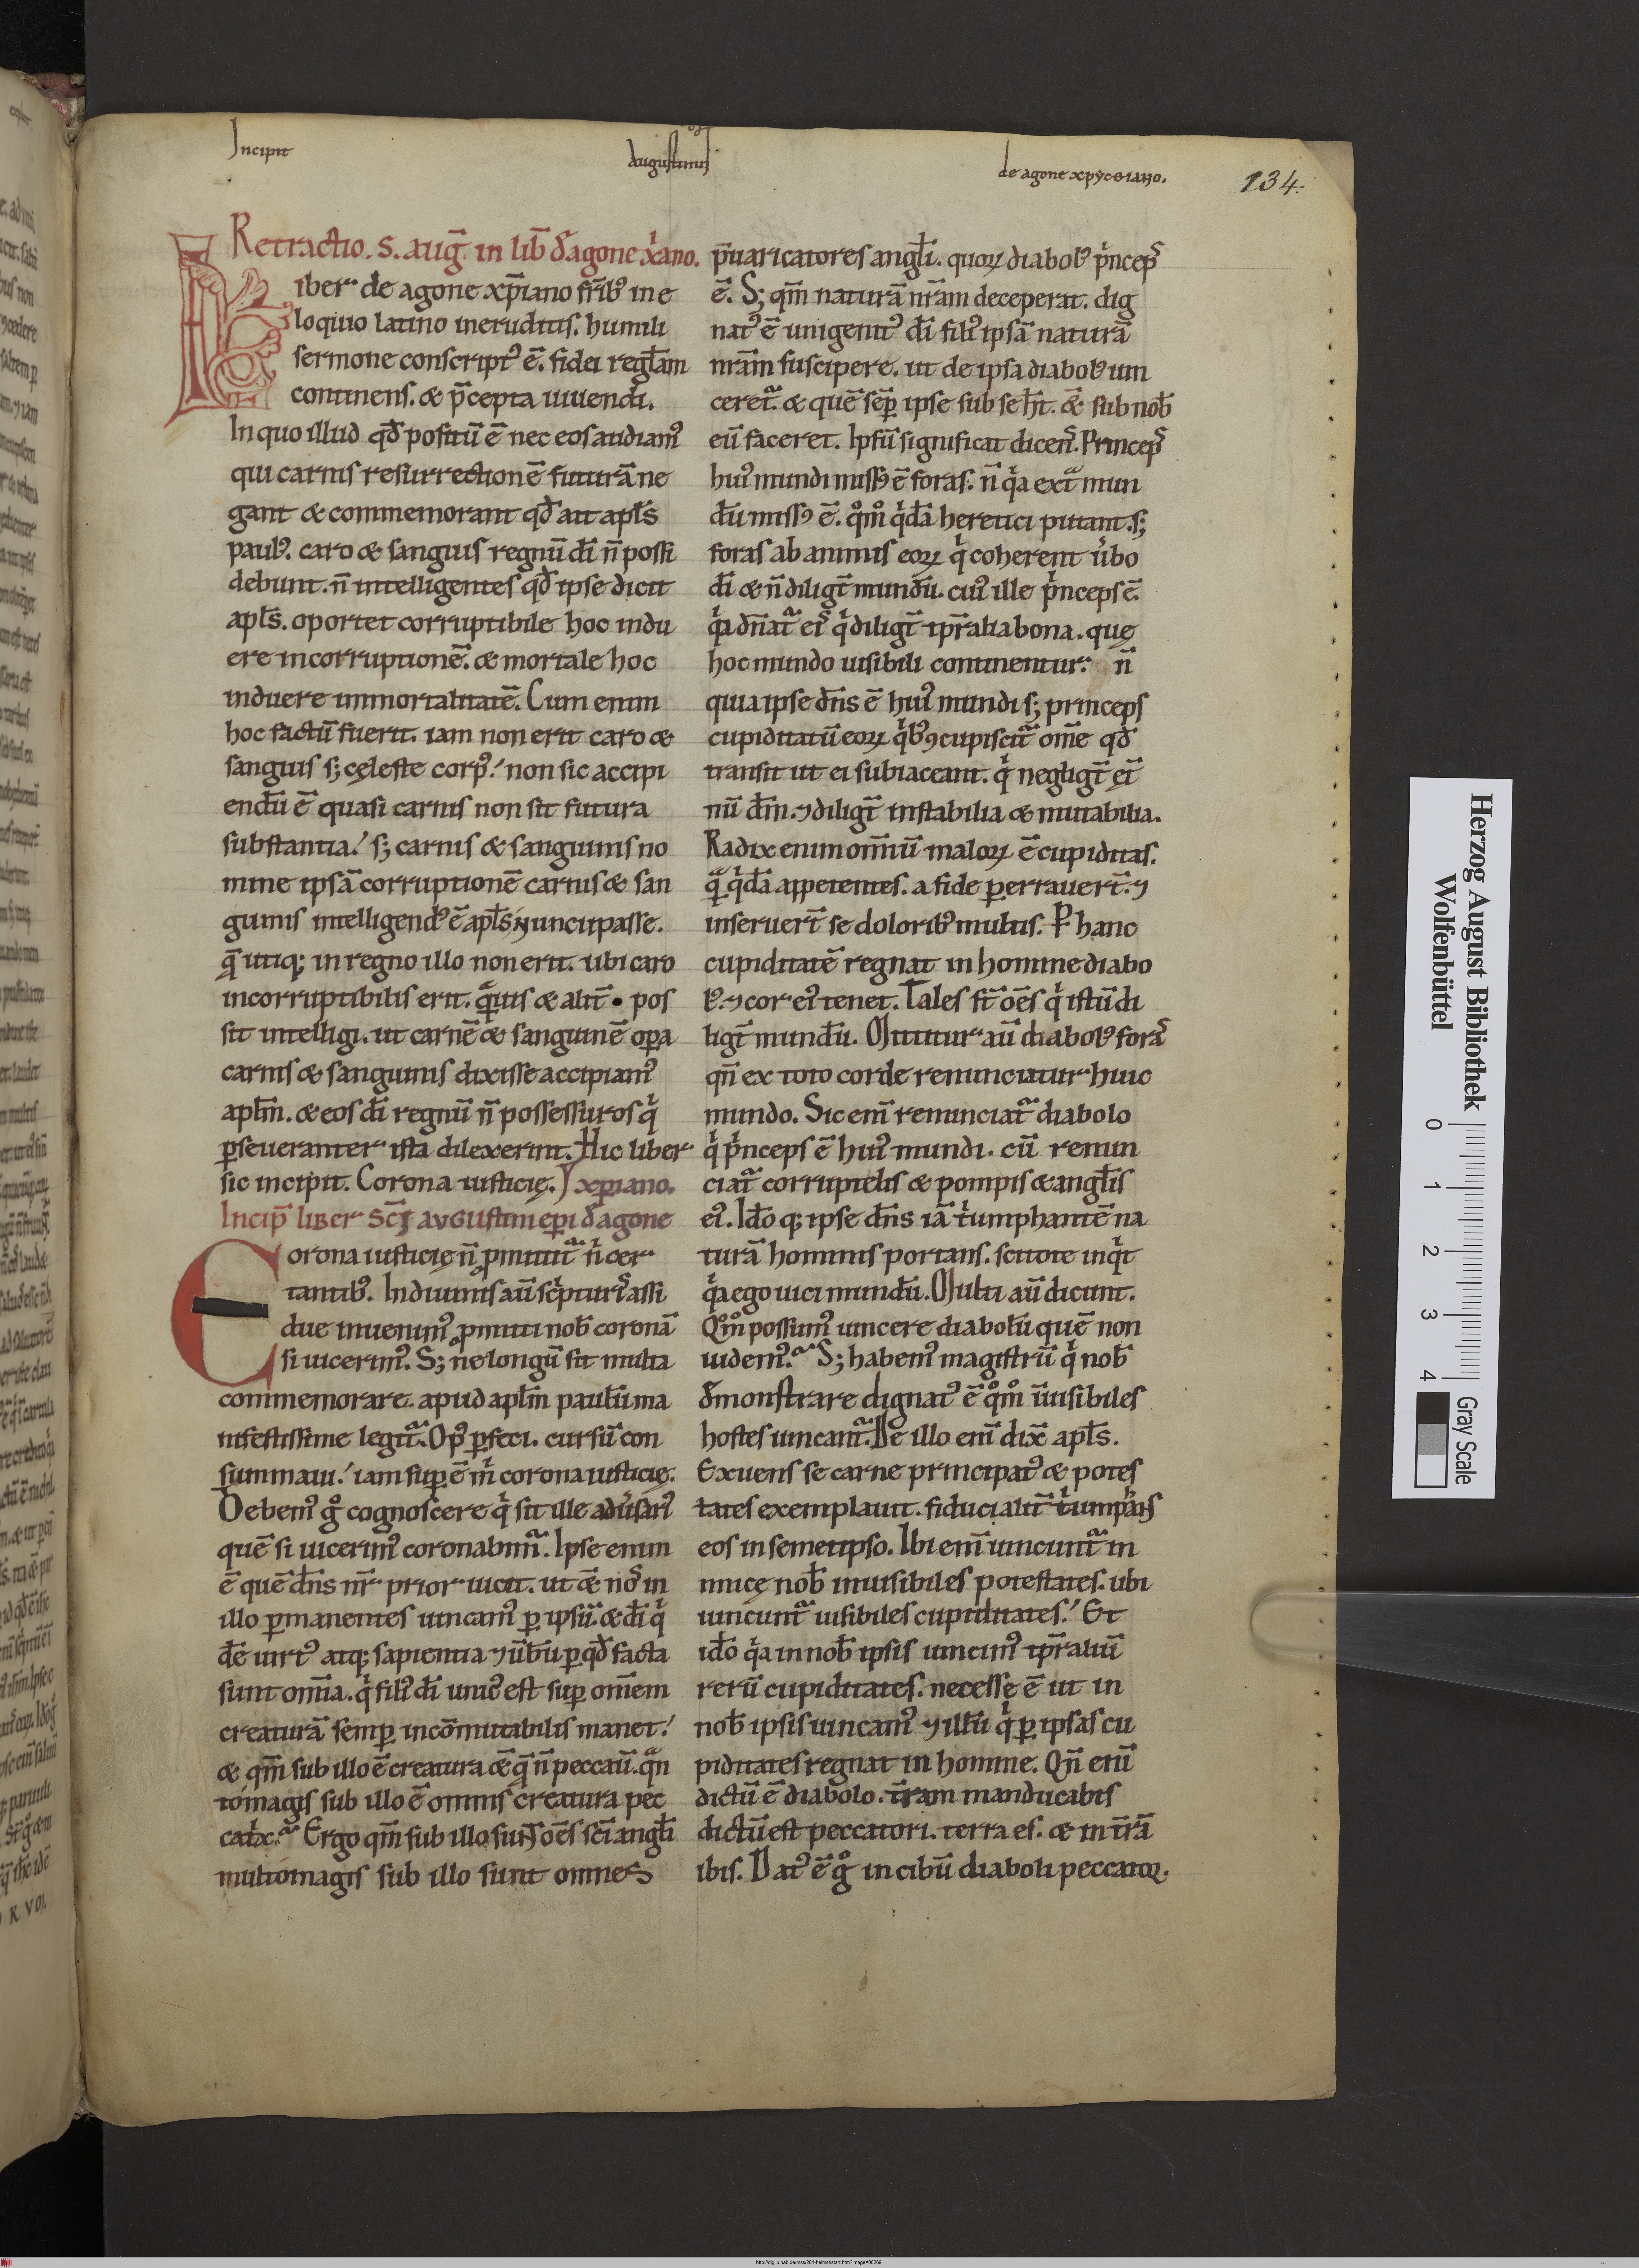 Incipit
augustinus
de agone xpyсθιano.
134.
Retractio. s. aug̅. in lib̅ d̅ agone xͥano.
iber de agone xp̅iano fr̅ibꝰ in e
loquio latino ineruditis. humili
sermone conscriptꝰ ē. fidei regl̅am
continens. & p̅cepta uiuendi.
In quo illud qđ positū ē nec eos audiamꝰ
qui carnis resurrectionē futurā ne
gant & commemorant qđ ait apl̅s
paulꝰ. caro & sanguis regnū dī n̅ possi
debunt. n̅ intelligentes qđ ipse dicit
apl̅s. oportet corruptibile hoc indu
ere incorruptionē. & mortale hoc
induere immortalitatē. Cum enim
hoc factū fuerit. iam non erit caro &
sanguis s; cęleste corpꝰ. non sic accipi
endū ē quasi carnis non sit futura
substantia. s; carnis & sanguinis no
mine ipsā corruptionē carnis & san
guinis intelligendꝰ ē apl̅s nuncupasse.
q̅ utiq; in regno illo non erit. ubi caro
incorruptibilis erit. qͣuis & alit̅ pos
sit intelligi. ut carnē & sanguinē oꝑa
carnis & sanguinis dixisse accipiamꝰ
apl̅m. & eos dī regnū n̅ possessuros qͥ
ꝑseueranter ista dilexerint. Hic liber
sic incipit. Corona iusticię. xp̅iano.
Incip̅ liber sc̅i augustini ep̅i d̅ agone
Corona iusticię n̅ ꝓmittit̅ nͥ cer
tantibꝰ. In diuinis aū scͥpturis assi
due inuenimꝰ ꝓmitti nob̅ coronā
si uicerimꝰ. S; ne longū sit multa
commemorare. apud apl̅m paulū ma
nifestissime legit̅. Opꝰ ꝑfeci. cursū con
summaui. iam suꝑ ē mͥ corona iusticię.
Debemꝰ gͦ cognoscere qͥ sit ille aduͥsariꝰ
quē si uicerimꝰ coronabimͣ. Ipse enim
ē quē dn̅s nr̅ prior uicit. ut &̅ nos in
illo ꝑmanentes uincamꝰ ꝑ ipsū. & dī qͥ
dē uirtꝰ atq; sapientia ⁊ ub̅ū ꝑ qđ facta
sunt om̅ia. qͥ filiꝰ dī unicꝰ est suꝑ om̅em
creaturā semꝑ incōmutibilis manet.
& qm̅ sub illo ē creatura &̅ q̅ n̅ peccauͥ. qͣn
tomagis sub illo ē omnis creatura pec
catͥx. Ergo qm̅ sub illo sunt oēs sc̅i angl̅i
multomagis sub illo sunt omnes
p̅uaricatores angl̅i. quoꝝ diabolꝰ pͥnceps
ē. S; qm̅ naturā nr̅am deceperat. dig
natꝰ ē unigenitꝰ dī filiꝰ ipsā naturā
nr̅am suscipere. ut de ipsa diabolꝰ uin
ceret̅. & quē sēꝑ ipse sub se h̅t. &̅ sub nob̅
eū faceret. Ipsū significat dicens. Princeps
huiꝰ mundi missꝰ ē foras. n̅ qͥa extͣ mun
dū missꝰ ē. qͦmͦ qͥdā heretici putant. s;
foras ab animis eoꝝ qͥ coherent uͥbo
dī & n̅ diligt̅ mundū. cuiꝰ ille pͥnceps ē.
qͥa dn̅at̅ eis qͥ diligt̅ tp̅ralia bona. quę
hoc mundo uisibili continentur. n̅
quia ipse dn̅s ē huiꝰ mundi s; princeps
cupiditatū eoꝝ qͥbꝰ ꝯcupiscit̅ om̅e qđ
transit ut ei subiaceant. qͥ negligt̅ et̅
nū dm̅. ⁊ diligt̅ instabilia & mutabilia.
Radix enim omīū maloꝝ ē cupiditas.
qͣ qͥdā appetentes. a fide ꝑerrauert̅. ⁊
inseruert̅ se doloribꝰ multis. P hanc
cupiditatē regnat in homine diabo
lꝰ. ⁊ cor eiꝰ tenet. Tales st̅ oēs qͥ istū di
ligt̅ mundū. Mittitur aū diabolꝰ foras
qn̅ ex toto corde renunciatur huic
mundo. Sic enī renunciat̅ diabolo
qͥ pͥnceps ē huiꝰ mundi. cū renun
ciat̅ corruptelis & pompis & angl̅is
eiꝰ. Idō q; ipse dn̅s iā tͥumphantē na
turā hominis portans. scitote inqͥt
qͥa ego uici mundū. Multi aū dicunt.
Qͦmͦ possumꝰ uincere diabolū quē non
uidemꝰ. S; habemꝰ magistrū qͥ nob̅
d̅monstrare dignatꝰ ē qͦmͦ īuisibiles
hostes uincant̅. De illo enī dix̅ apl̅s.
Exuens se carne principatꝰ & potes
tates exemplauit. fiducialit̅ tͥumphans
eos in semetipso. Ibi enī uincunt̅ in
imicę nob̅ inuisibiles potestates. ubi
uincunt̅ uisibiles cupiditates. Et
idō qͥa in nob̅ ipsis uincimꝰ tp̅raliū
rerū cupiditates. necesse ē ut in
nob̅ ipsis uincamꝰ ⁊ illū qͥ ꝑ ipsas cu
piditates regnat in homine. Qn̅ enī
dictū ē diabolo. tr̅am manducabis
dictū est peccatori. terra es. & in tr̅ā
ibis. Datꝰ ē gͦ in cibū diaboli peccator.
Herzog August Bibliothek
Wolfenbüttel
0 1 2 3 4
Gray Scale
http://diglib.hab.de/mss/281-helmst/start.htm?image=00269